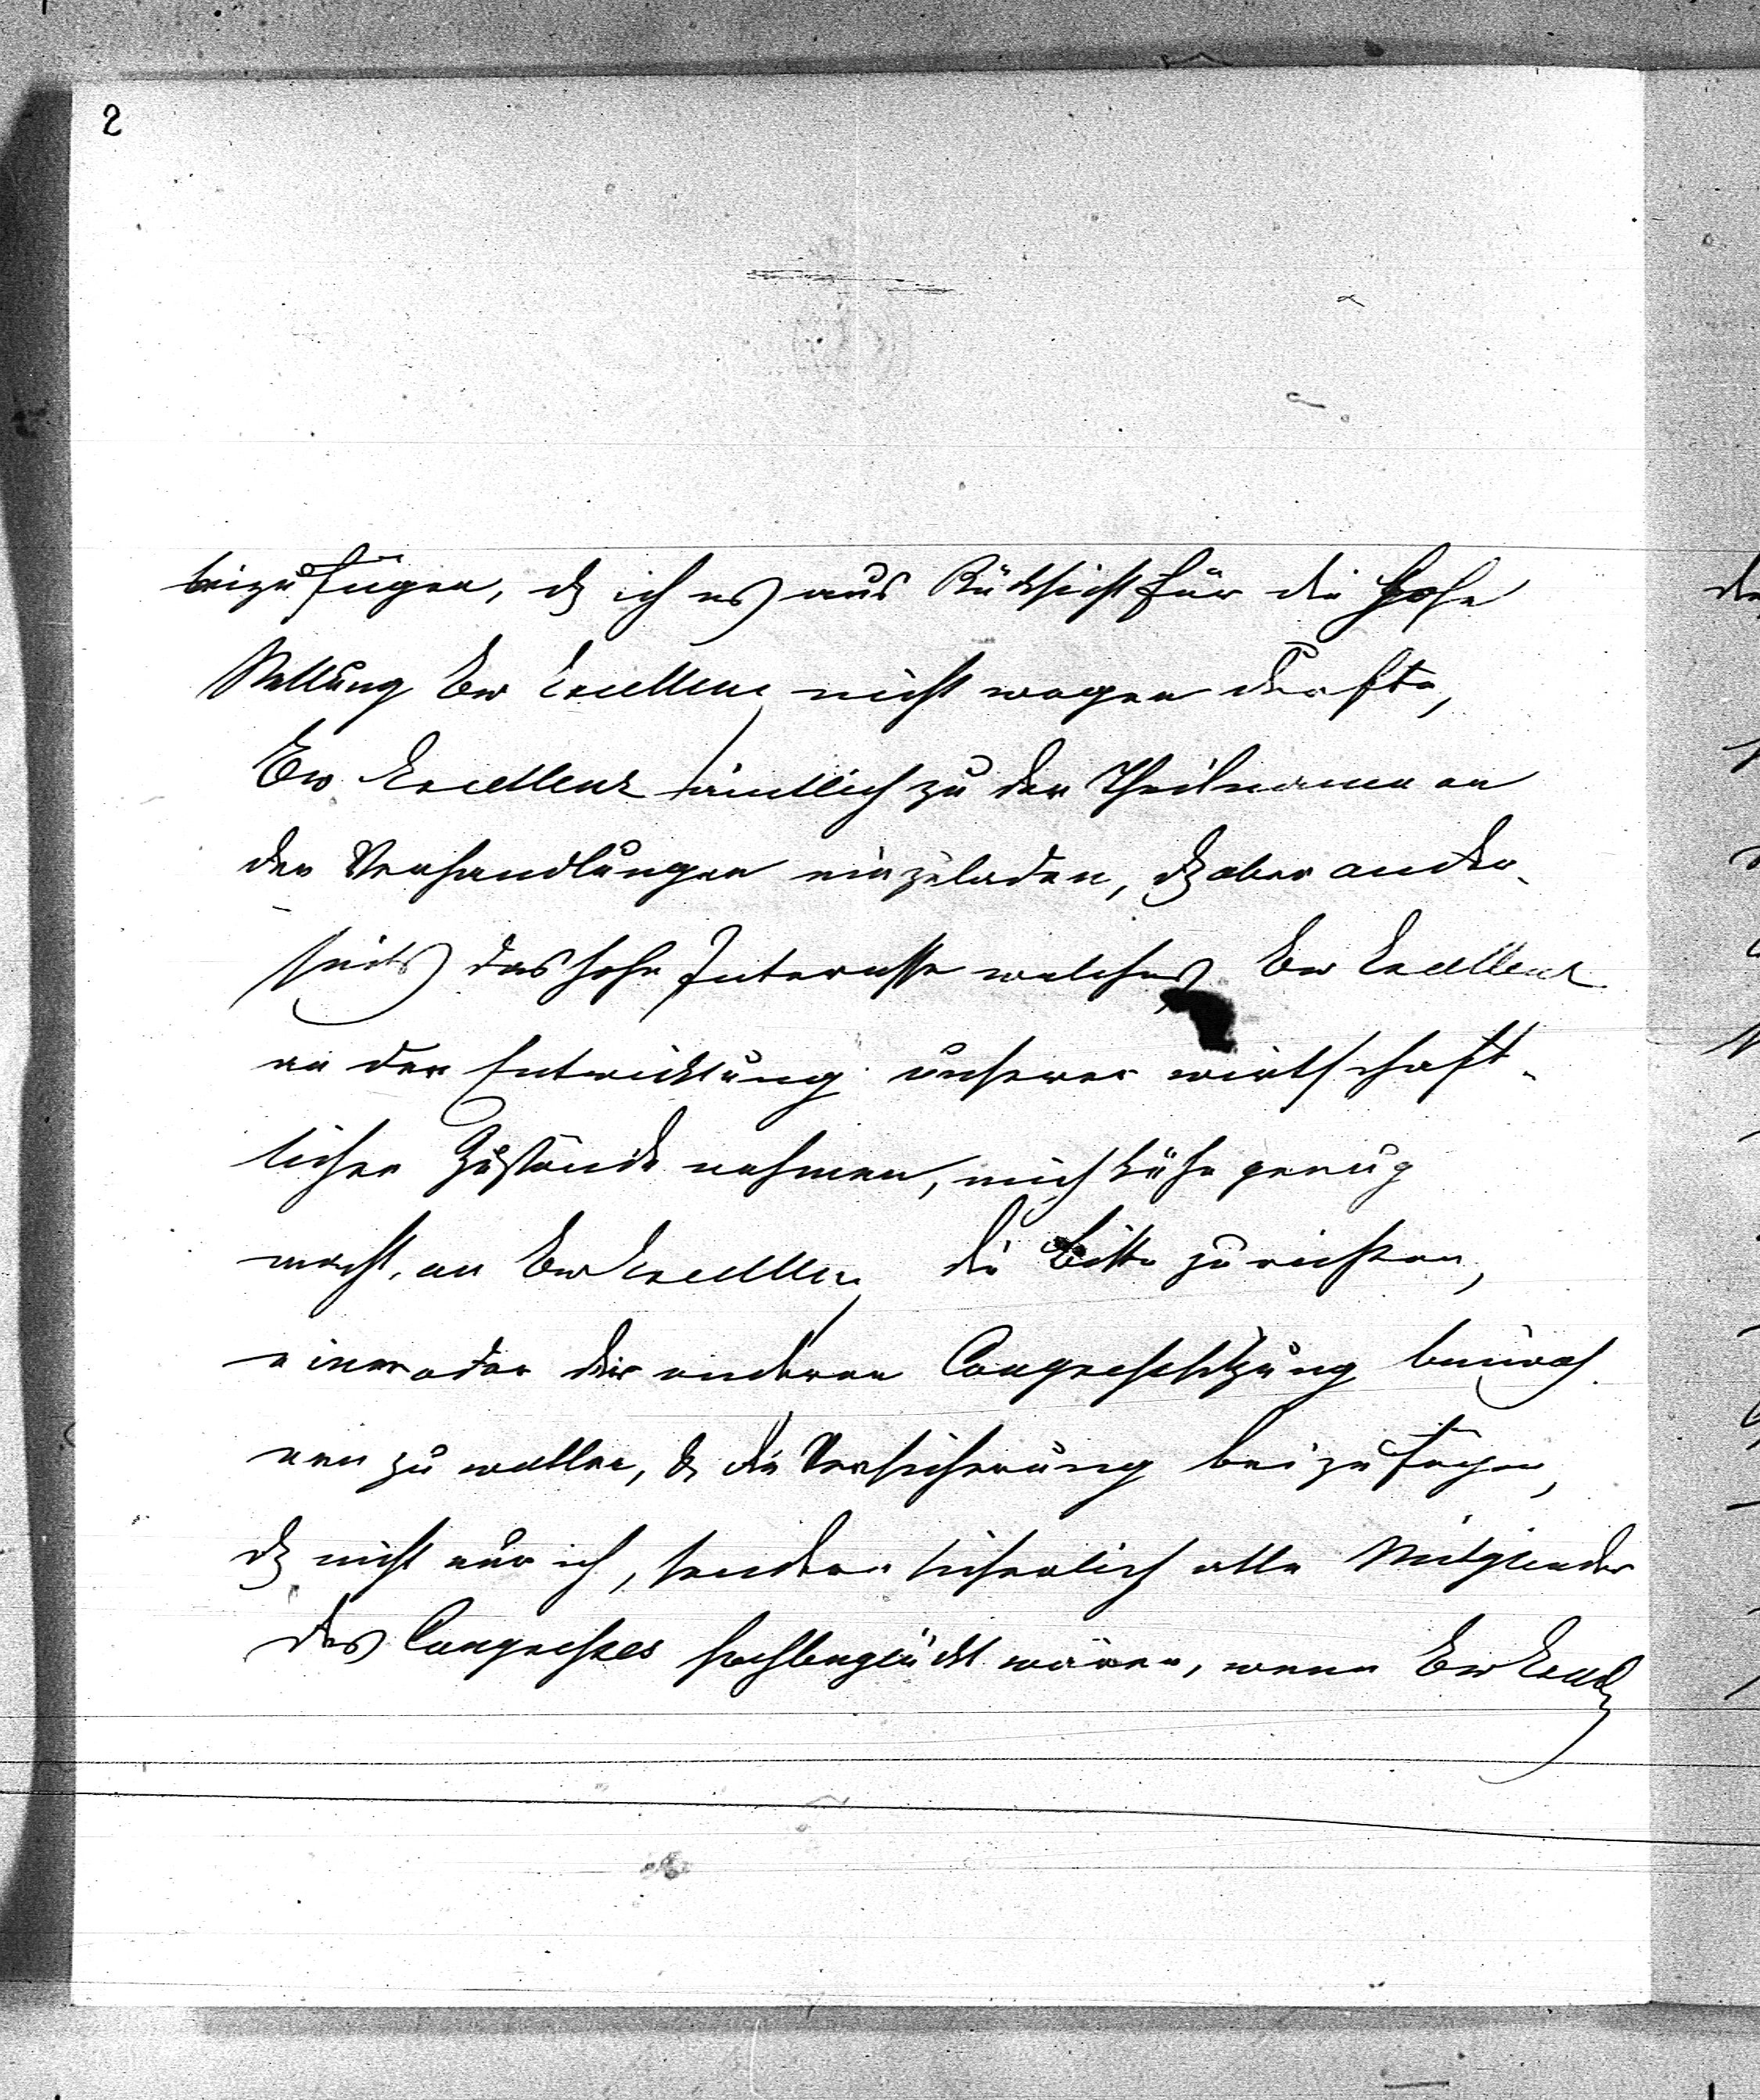 2
beizufügen, dß ich es aus Rücksicht für die hohe
Stellung Ew Excellenz nicht wagen durfte,
Ew Excellenz förmlich zu der Theilnahme an
den Verhandlungen einzuladen, dß aber ander-
seits das hohe Interesse welches Ew Excellenz
an der Entwicklung unserer wirthschaft-
lichen Zustände nehmen, mich kühn genug
macht, an Ew Excellenz die Bitte zu richten,
einer oder der anderen Congresssitzung
zu wollen, & die Versicherung beizufügen,
dß nicht nur ich, sondern sicherlich alle Mitglieder
des Congresses hochbeglückt wären, wenn Ew Excellz